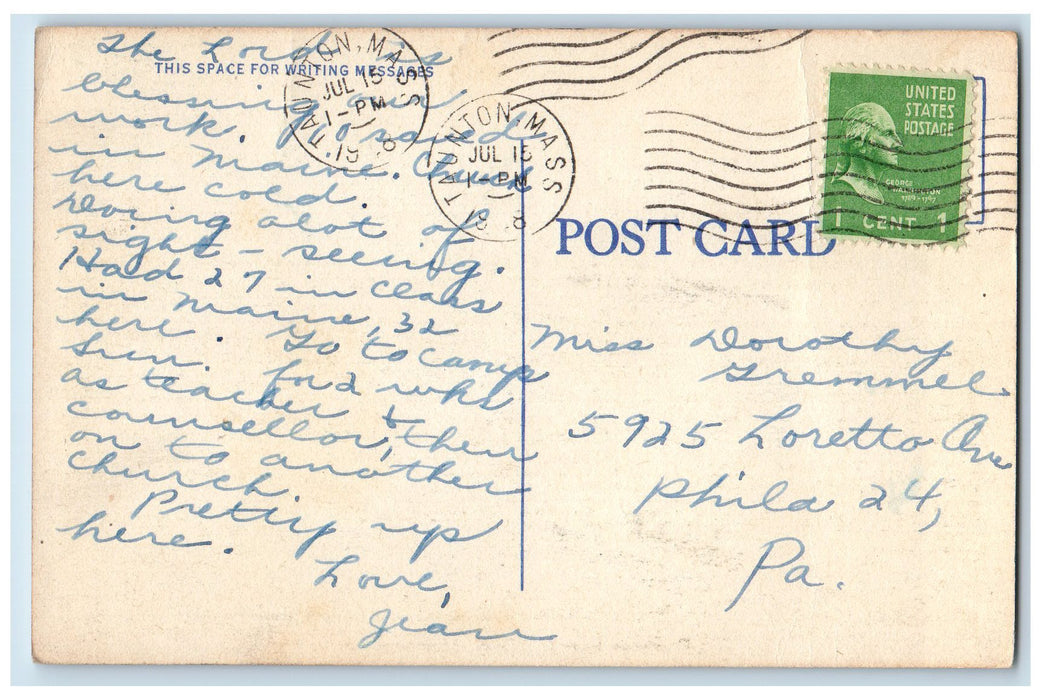 The Lord is
THIS SPACE FOR WRITING MESSAGES
blessing our
work. 
in Maine. Church
here cold.
Doing alot of
sight-seeing.
Had 27 in class
in Maine, 32
here. Go to camp
Sun. for 2 wks
as teacher &
counsellor, then
on to another
church.
Pretty up
here.
Love,
Jean
TAUNTON, MASS
JUL 15
1-PM
TAUNTON, MASS
JUL 15
1-PM
UNITED
STATES
POSTAGE
GEORGE
WASHINGTON
1789-1797
1 CENT 1
POST CARD
Miss Dorothy
Gremmel
5925 Loretto Ave
Phila 24,
Pa.